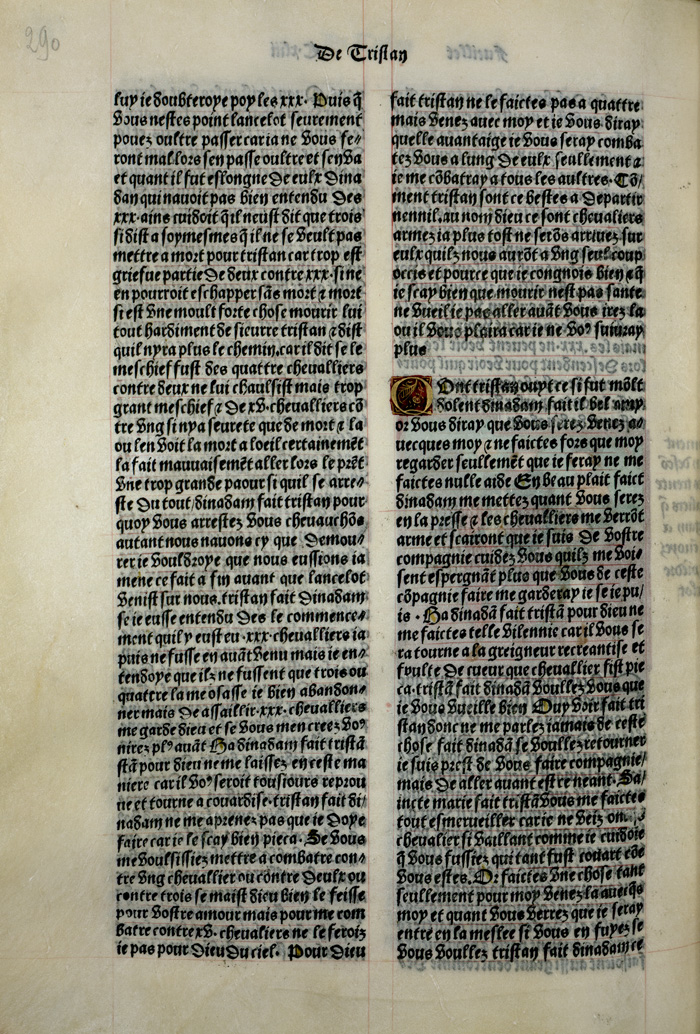 290
De Tristan
luy ie doubteroye poy les xxx. Puis q̃
vous nestes point lancelot seurement
pouez oultre passer car ia ne vous fe⸗
ront mal lors sen passe oultre et sen va
et quant il fut eslongne de eulx dina
dan qui nauoit pas bien entendu des
xxx. ains cuidoit q̃ il neust dit que trois
si dist a soymesmes q̃ il ne se veult pas
mettre a mort pour tristan car trop est
griefue partie de deux contre xxx. si ne
en pourroit eschapper sãs mort ⁊ mort
si est vne moult forte chose mourir lui
tout hardiment de sieurre tristan ⁊ dist
quil nyra plus le chemin. car il dit se le
meschief fust des quattre cheualliers
contre deux ne lui chaulsist mais trop
grant meschief ⁊ de xv. cheualliers cõ
tre vng si nya seurete que de mort ⁊ la
ou len voit la mort a loeil certainemẽt
la fait mauuaisemẽt aller lors le prẽt
vne trop grande paour si quil se arre⸗
ste du tout / dinadam fait tristan pour
quoy vous arrestez vous cheuauchõs
autant nous nauons cy que demou⸗
rer ie vouldroye que nous eussions ia
mene ce fait a fin auant que lancelot
venist sur nous. tristan fait dinadam
se ie eusse entendu des le commence⸗
ment quil y eust eu .xxx. cheualliers ia
puis ne fusse en auãt venu mais ie en⸗
tendoye que ilz ne fussent que trois ou
quattre la me osasse ie bien abandon⸗
ner mais de assaillir .xxx. cheualliers
me garde dieu et se vous men creez voꝰ
nirez plꝰ auãt Ha dinadam fait tristã
stã pour dieu ne me laissez en ceste ma
niere car il voꝰ seroit tousiours reprou
ue et tourne a couardise. tristan fait di⸗
nadam ne me aprenez pas que ie doye
faire car ie le scay bien pieca. Se vous
me voulsissiez mettre a combatre con⸗
tre vng cheuallier ou contre deulx ou
contre trois se maist dieu bien le feisse
pour vostre amour mais pour me com
batre contre xv. cheualiers ne le feroiz
ie pas pour dieu du ciel. Pour dieu
fait tristan ne le faictes pas a quattre
mais venez auec moy et ie vous diray
quelle auantaige ie vous feray comba
tez vous a lung de eulx seullement ⁊
ie me cõbatray a tous les aultres. Cõ⸗
ment tristan sont ce bestes a departir
nennil. au nom dieu ce sont cheualiers
armez ia plus tost ne serõs arriuez sur
eulx quilz nous aurõt a vng seul coup
occis et pource que ie congnois bien ⁊ q̃
ie scay bien que mourir nest pas sante
ne vueil ie pas aller auãt vous irez la
ou il vous plaira car ie ne voꝰ suiuray
plus
Quant tristan ouyt ce si fut mõlt
dolent dinadam fait il bel amy
or vous diray que vous ferez venez a⸗
uecques moy ⁊ ne faictes fors que moy
regarder seullemẽt que ie feray ne me
faictes nulle aide En beau plait faict
dinadam me mettez quant vous serez
en la presse ⁊ les cheualliers me verrõt
arme et scairont que ie suis de vostre
compagnie cuidez vous quilz me voi⸗
sent espergnãt plus que vous de ceste
cõpagnie faire me garderay ie se ie pu⸗
is . Ha dinadã fait tristã pour dieu ne
me faictes telle villennie car il vous se
ra tourne a la greigneur recreantise et
foulte de cueur que cheuallier fist pie
ca. tristã fait dinadã voullez vous que
ie vous vueille bien Ouy voir fait tri
stan donc ne me parlez iamais de ceste
chose fait dinadã se voullez retourner
ie suis prest de vous faire compagnie⸗
mais de aller auant est ce neant. Sa⸗
incte marie fait tristã vous me faictes
tout esmerueiller car ie ne veiz
cheualier si vaillant comme ie cuidoie
q̃ vous fussiez qui tant fust couart cõe
vous estes. Or faictes vne chose tant
seullement pour moy venez la auecq̃s
moy et quant vous verrez que ie seray
entre en la meslee si vous en fuyez se
vous voullez tristan fait dinadam ce